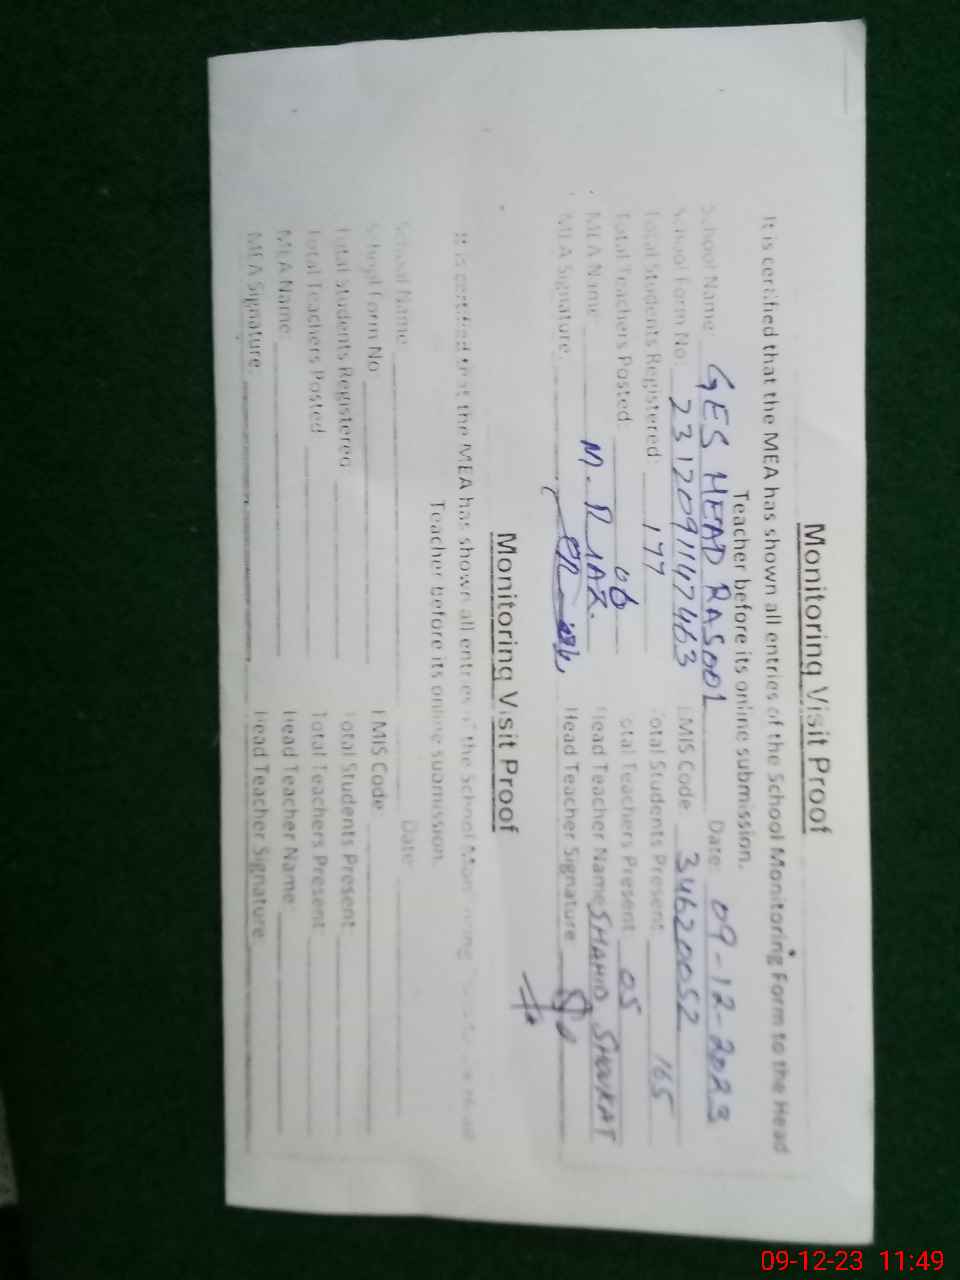 Monitoring Visit Proof
It is certified that the MEA has shown all entries of the School Monitoring Form to the Head
Teacher before its online submission.
School Name: GES HEAD RASOOL Date: 09-12-2023
School Form No: 231209114 7463 EMIS Code: 34620052
Total Students Registered: 177 Total Students Present: 165
Total Teachers Posted: 06 Total Teachers Present: 05
MEA Name: M. RIAZ. Head Teacher Name: SHAHID SHOUKAT
MEA Signature: Head Teacher Signature:
Monitoring Visit Proof
It is certified that the MEA has shown all entries of the School Monitoring Form to the Head
Teacher before its online submission.
School Name: Date:
School Form No: EMIS Code:
Total Students Registered: Total Students Present:
Total Teachers Posted: Total Teachers Present:
MEA Name: Head Teacher Name:
MEA Signature: Head Teacher Signature:
09-12-23 11:49